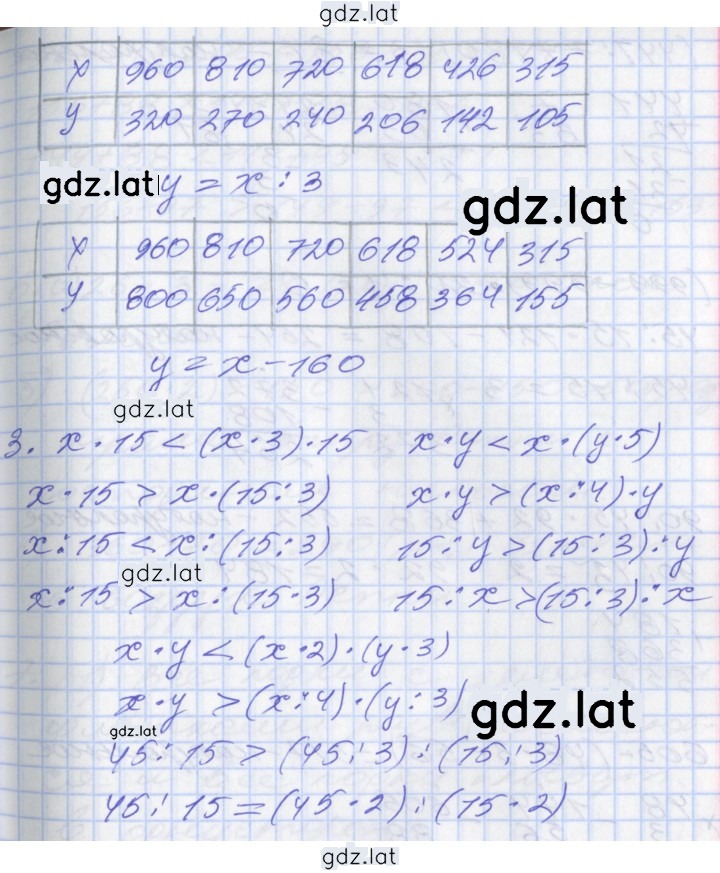 gdz.lat
x 960 810 720 618 426 315
y 320 270 240 206 142 105
gdz.lat y = x : 3
gdz.lat
x 960 810 720 618 524 315
y 800 650 560 458 364 155
y = x - 160
gdz.lat
3. x · 15 < (x · 3) · 15 x · y < x · (y · 5)
x · 15 > x · (15 : 3) x · y > (x : 4) · y
x : 15 < x : (15 : 3) 15 : y > (15 : 3) : y
gdz.lat
x : 15 > x : (15 · 3) 15 : x > (15 : 3) : x
x · y < (x · 2) · (y · 3)
x · y > (x : 4) · (y : 3)
gdz.lat
gdz.lat
45 : 15 > (45 : 3) : (15 : 3)
45 : 15 = (45 · 2) : (15 · 2)
gdz.lat